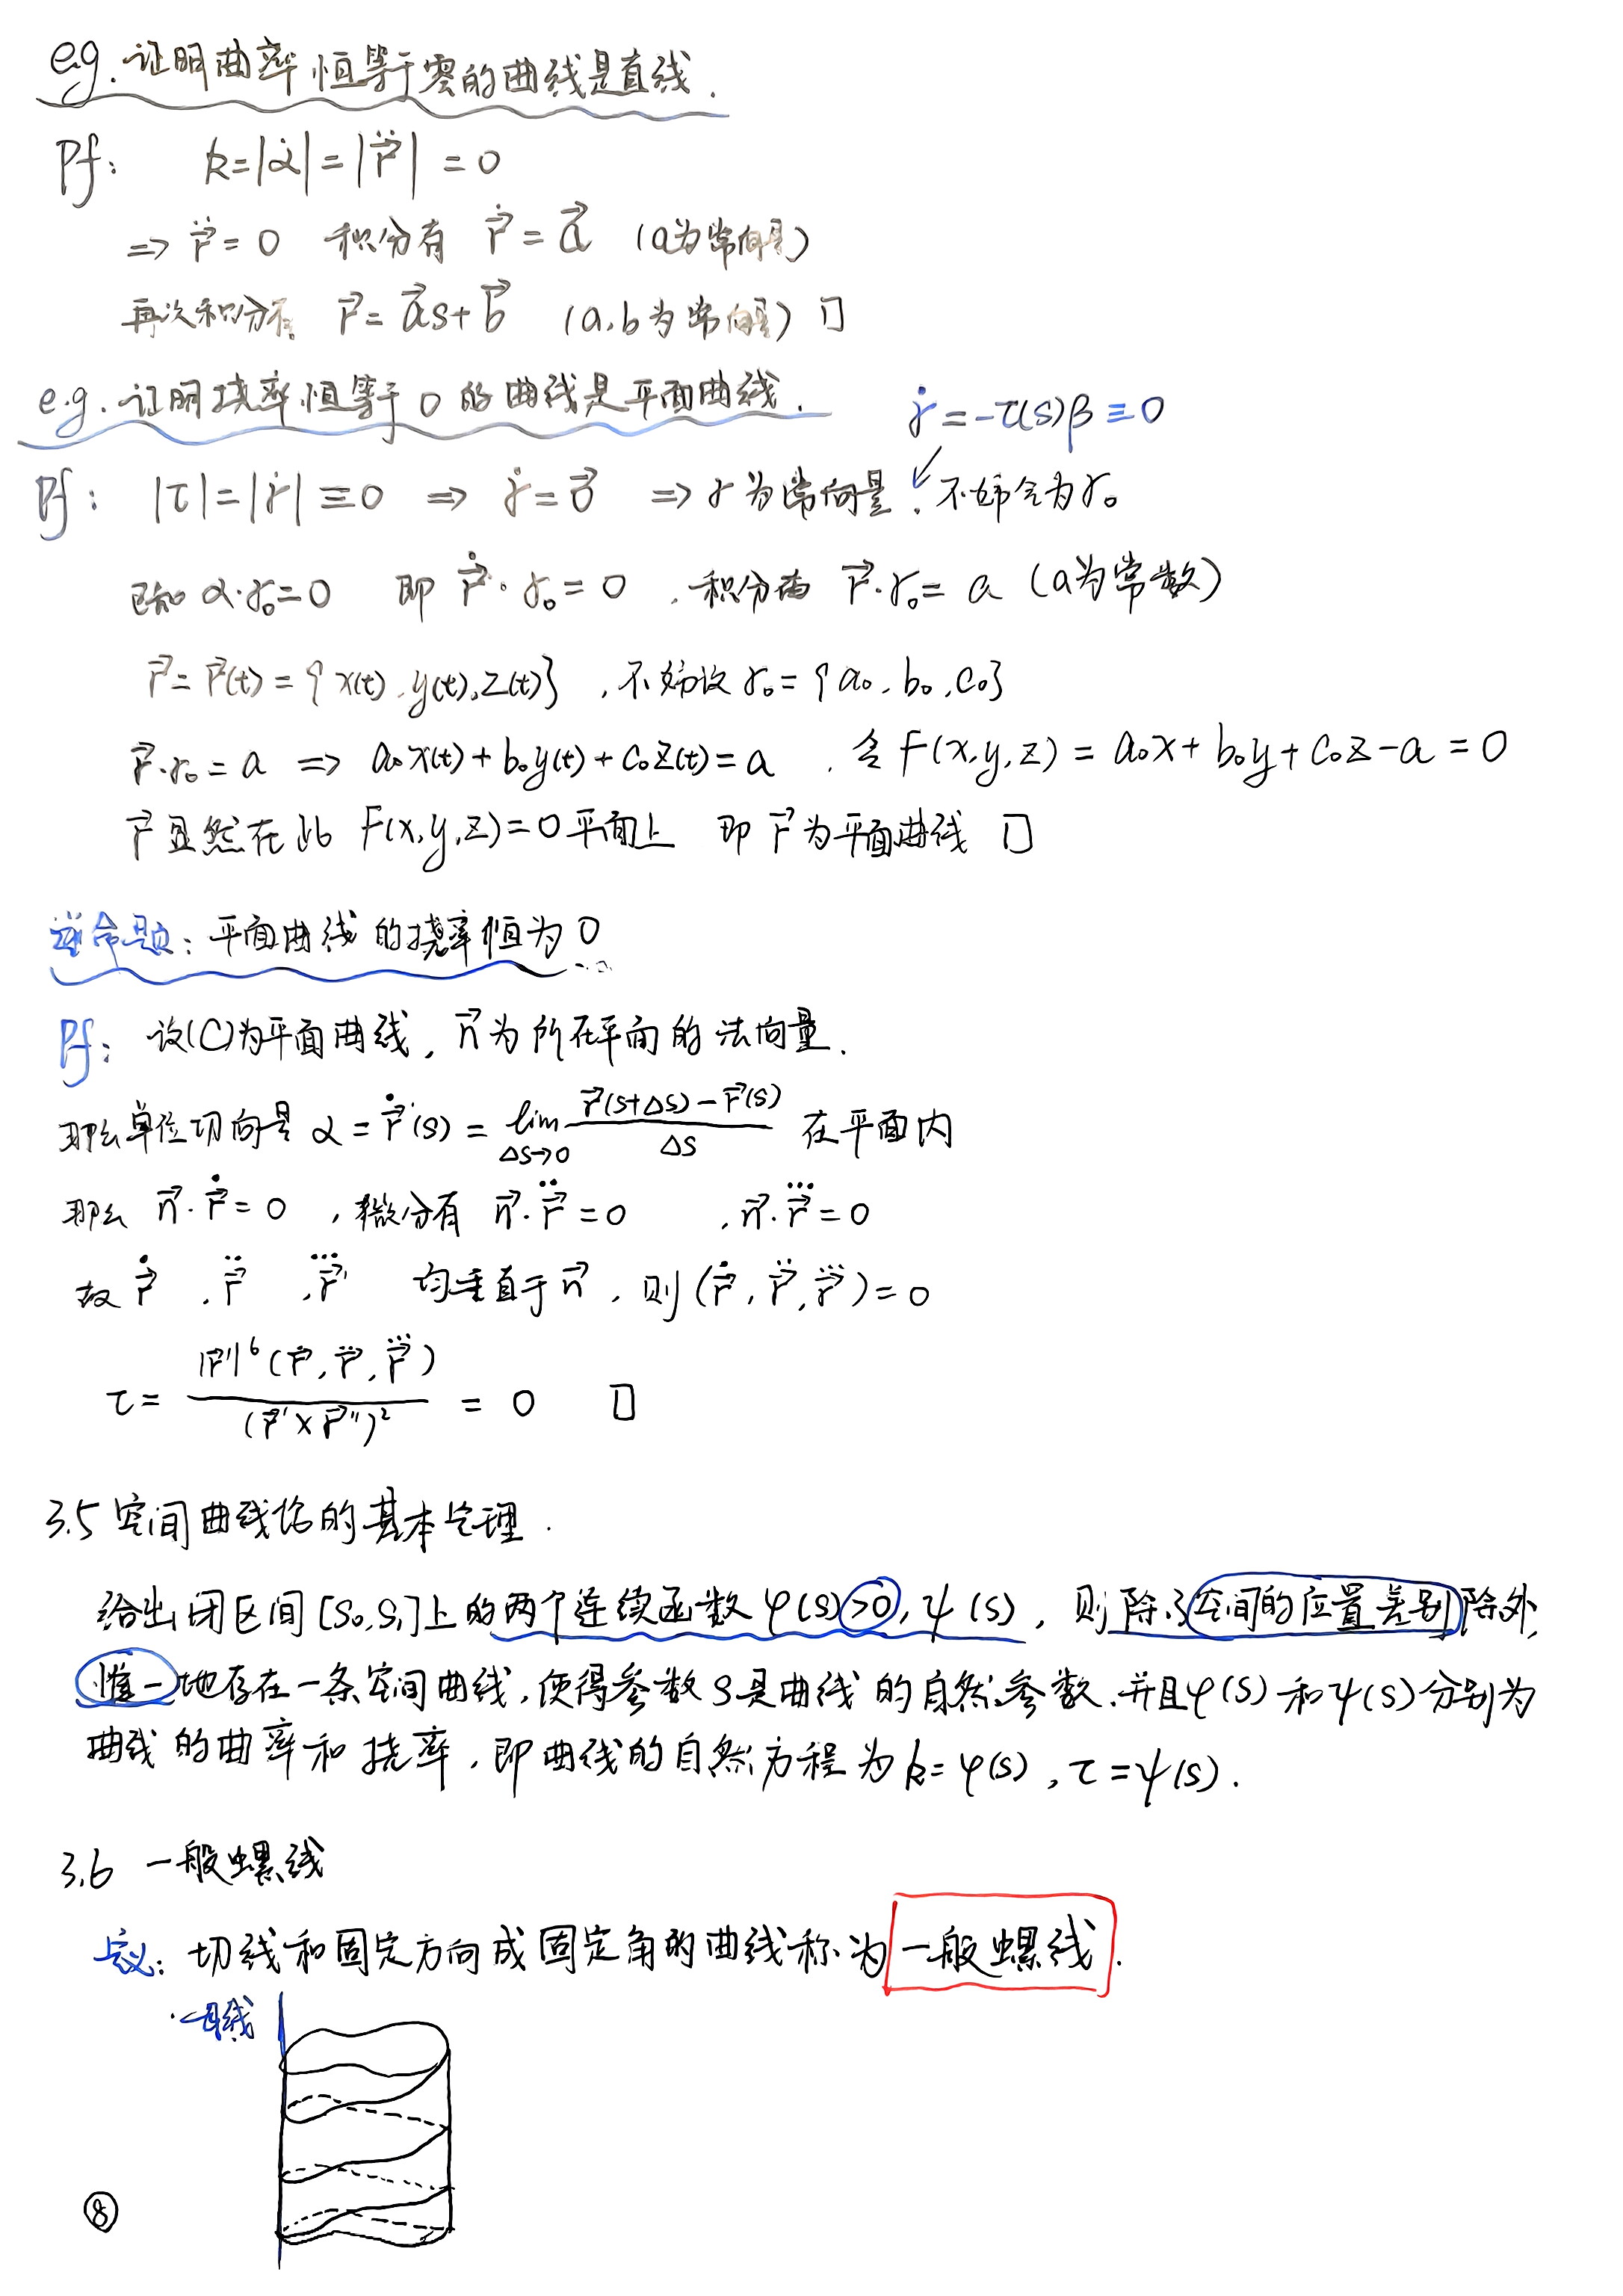 e.g. 证明曲率恒等于零的曲线是直线.
Pf: k=|α̇|=|r⃗̈|=0
⇒ r⃗̈=0 积分有 r⃗̇=a⃗ (a为常向量)
再次积分有 r⃗=a⃗s+b⃗ (a,b为常向量) □
e.g. 证明挠率恒等于0的曲线是平面曲线.
γ̇=-τ(s)β≡0
Pf: |τ|=|γ̇|≡0 ⇒ γ̇=0⃗ ⇒ γ为常向量. 不妨令为γ₀
已知 α·γ₀=0 即 r⃗̇·γ₀=0, 积分有 r⃗·γ₀=a (a为常数)
r⃗=r⃗(t)={x(t),y(t),z(t)}, 不妨设γ₀={a₀,b₀,c₀}
r⃗·γ₀=a ⇒ a₀x(t)+b₀y(t)+c₀z(t)=a, 令F(x,y,z)=a₀x+b₀y+c₀z-a=0
r⃗显然在此F(x,y,z)=0平面上 即r⃗为平面曲线 □
逆命题: 平面曲线的挠率恒为0
Pf: 设(C)为平面曲线, n⃗为所在平面的法向量.
那么单位切向量 α=r⃗̇(s)=lim_{Δs→0} (r⃗(s+Δs)-r⃗(s))/Δs 在平面内
那么 n⃗·r⃗̇=0, 微分有 n⃗·r⃗̈=0, n⃗·r⃗⃛=0
故 r⃗̇, r⃗̈, r⃗⃛ 均垂直于n⃗, 则(r⃗̇,r⃗̈,r⃗⃛)=0
τ= |r⃗'|⁶(r⃗̇,r⃗̈,r⃗⃛)/(r⃗'×r⃗'')² = 0 □
3.5 空间曲线论的基本定理.
给出闭区间[S₀,S₁]上的两个连续函数φ(s)>0,ψ(s), 则除了空间的位置差别除外,
惟一地存在一条空间曲线,使得参数S是曲线的自然参数.并且φ(s)和ψ(s)分别为
曲线的曲率和挠率, 即曲线的自然方程为k=φ(s),τ=ψ(s).
3.6 一般螺线
定义: 切线和固定方向成固定角的曲线称为一般螺线.
母线
⑧